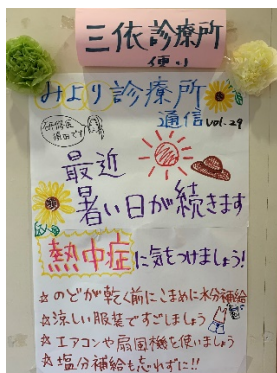 三依診療所
便り
みより診療所
通信 vol.29
最近
暑い日が続きます
熱中症に気をつけましょう!
☆のどが乾く前にこまめに水分補給
☆涼しい服装ですごしましょう
☆エアコンや扇風機を使いましょう
☆塩分補給も忘れずに!!